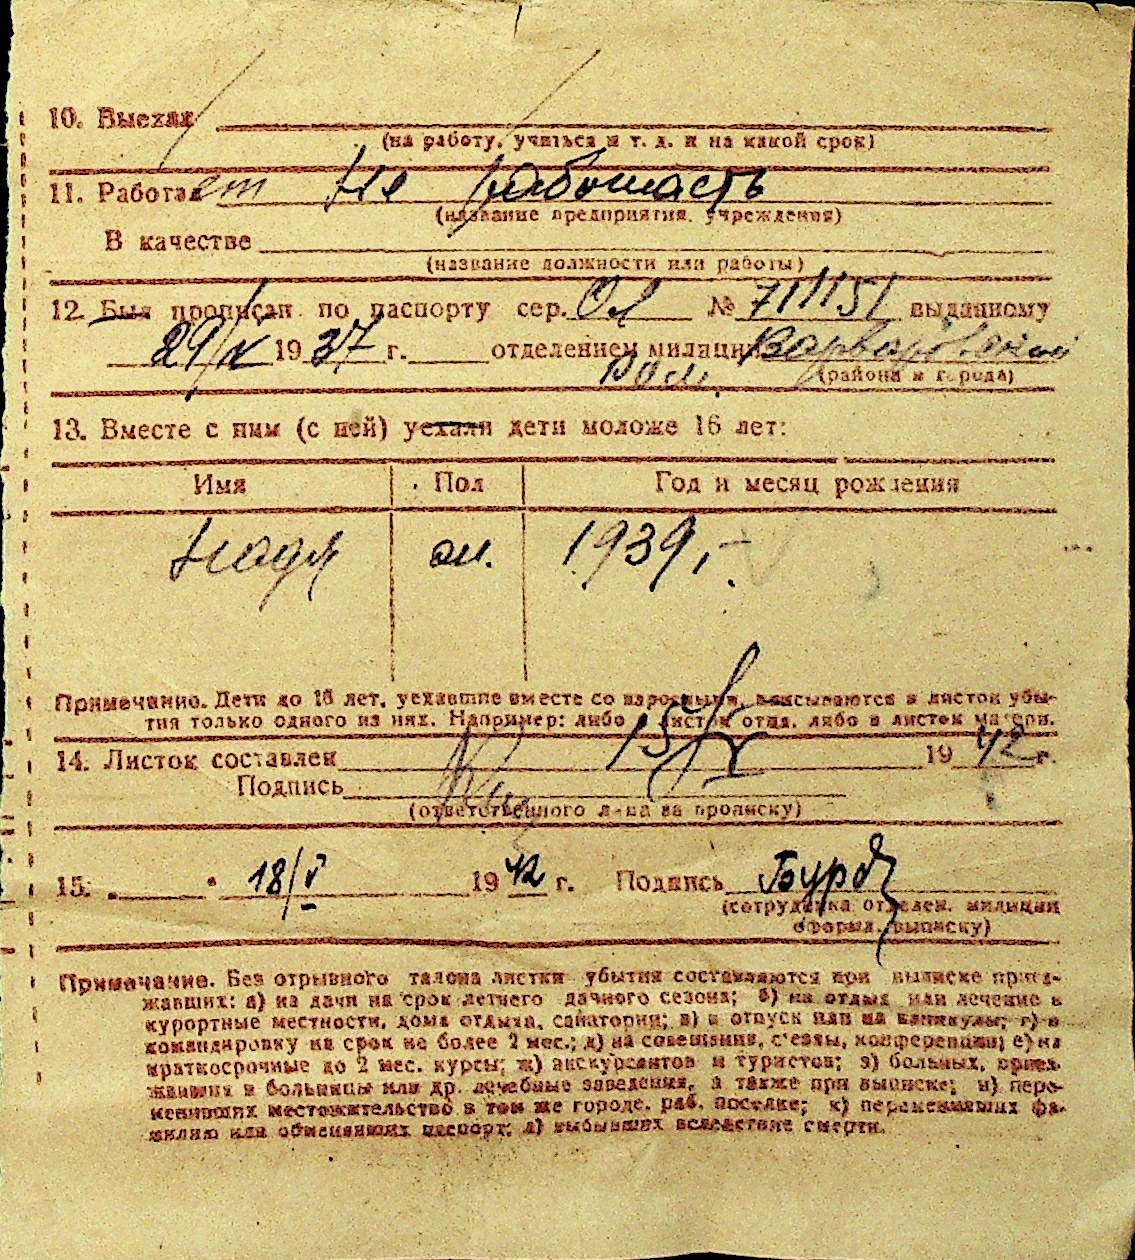 10. Выехал
(на работу, учиться и т. д. и на какой срок)
11. Работает Не работаеть
(название предприятия, учреждения)
В качестве
(название должности или работы)
12. Был прописан по паспорту сер. ОЛ № 711151 выданному
29/X 1937 г. отделением милиции Варваровским
РОМ (района и города)
13. Вместе с ним (с ней) уехали дети моложе 16 лет:
Имя Пол Год и месяц рождения
Надя 1939,-
Примечание. Дети до 16 лет, уехавшие вместе со взрослыми, вписываются в листок убы-
тия только одного из них. Например: либо в листок отца, либо в листок матери.
14. Листок составлен 15/V 1942 г.
Подпись
(ответственного лица за прописку)
15. „ " 18/V 1942 г. Подпись
(сотрудника отделен. милиции
оформл. выписку)
Примечание. Без отрывного талона листки убытия составляются при выписке приез-
жавших: а) на дачи на срок летнего дачного сезона; б) на отдых или лечение в
курортные местности, дома отдыха, санатории; в) в отпуск или на каникулы; г) в
командировку на срок не более 2 мес.; д) на совещания, с'езды, конференции; е) на
краткосрочные до 2 мес. курсы; ж) экскурсантов и туристов; з) больных, приез-
жавших в больницы или др. лечебные заведения, а также при выписке; и) пере-
менивших местожительство в том же городе, раб. поселке; к) переменивших фа-
милию или обменявших паспорт; л) выбывших вследствие смерти.